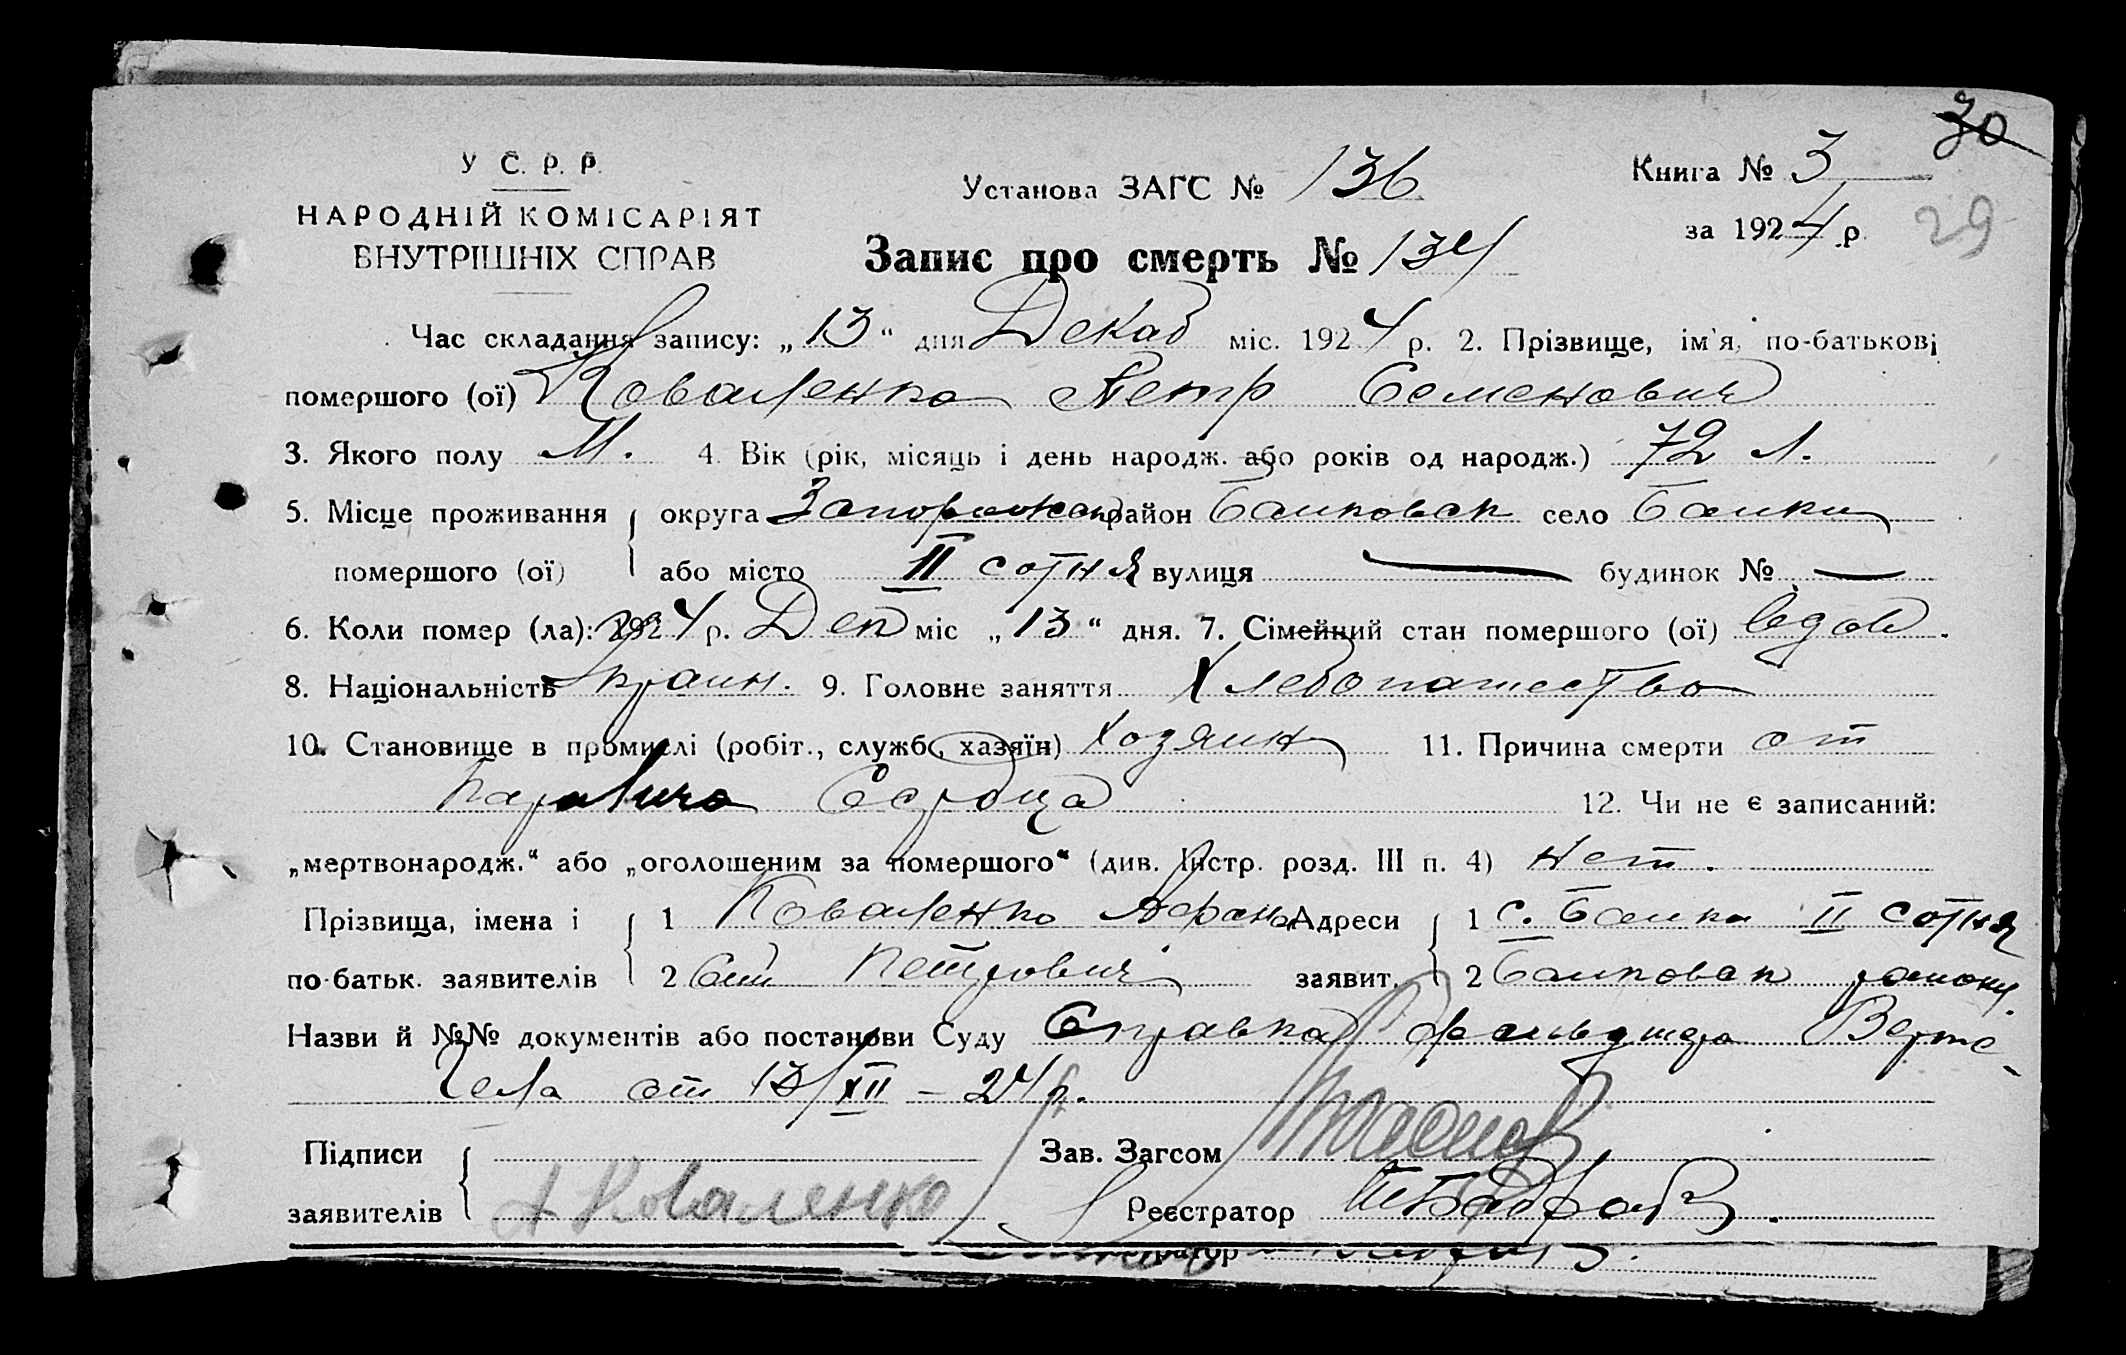 30
У С. Р. Р.
НАРОДНІЙ КОМІСАРІЯТ
ВНУТРІШНІХ СПРАВ
Установа ЗАГС № 136
Запис про смерть № 134
Книга № 3
за 1924 р.
29
Час складання запису: „13“ дня Декаб міс. 1924 р. 2. Прізвище, ім'я, по-батькові
помершого (ої) Коваленко Петр Семенович
3. Якого полу М. 4. Вік (рік, місяць і день народж. або років од народж.) 72 л.
5. Місце проживання округа Запорожск район Балковск село Балки
помершого (ої) або місто II сотня вулиця — будинок № —
6. Коли помер (ла): 1924 р. Дек міс „13“ дня. 7. Сімейний стан помершого (ої) вдов.
8. Національність Украин. 9. Головне заняття Хлебопашество
10. Становище в промислі (робіт., службс, хазяїн) Хозяин 11. Причина смерти от
Паралича Сердца 12. Чи не є записаний:
„мертвонародж.“ або „оголошеним за помершого“ (див. Інстр. розд. III п. 4) Нет.
Прізвища, імена і 1 Коваленко Афана Адреси 1 С. Балки II сотня
по-батьк. заявителів 2 сий Петрович заявит. 2 Балковск району.
Назви й №№ документів або постанови Суду Справка фельдшера
от 13/XII – 24 р.
Підписи Зав. Загсом
заявителів А Коваленко Реєстратор